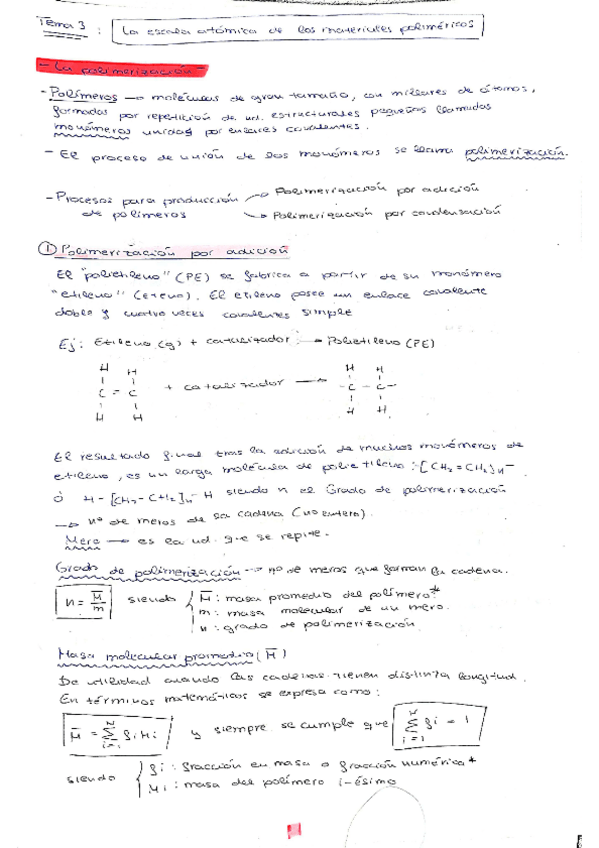 Tema 3 : La escala atómica de los materiales poliméricos
- La polimerización -
- Polímeros → moléculas de gran tamaño, con millares de átomos,
formadas por repetición de ud. estructurales pequeñas llamadas
monómeros unidas por enlaces covalentes.
- El proceso de unión de los monómeros se llama polimerización.
- Procesos para producción → Polimerización por adición
de polímeros → Polimerización por condensación
① Polimerización por adición
El "polietileno" (PE) se fabrica a partir de su monómero
"etileno" (eteno). El etileno posee un enlace covalente
doble y cuatro veces covalentes simple
Ej: Etileno (g) + catalizador → Polietileno (PE)
H H H H
C = C + catalizador → - C - C -
H H H H
El resultado final tras la adición de muchos monómeros de
etileno, es un larga molécula de polietileno: -[CH₂=CH₂]n-
ó H-[CH₂-CH₂]n-H siendo n el Grado de polimerización
→ nº de meros de sa cadena (nº entero).
Mero → es la ud. que se repite.
Grado de polimerización → nº de meros que forman la cadena.
n = M̅/m siendo M̅: masa promedio del polímero*
m: masa molecular de un mero.
n: grado de polimerización
Masa molecular promedio (M̅)
De utilidad cuando las cadenas tienen distinta longitud.
En términos matemáticos se expresa como:
M̅ = Σ fi Mi y siempre se cumple que Σ fi = 1
siendo fi: fracción en masa o fracción numérica*
Mi: masa del polímero i-ésimo